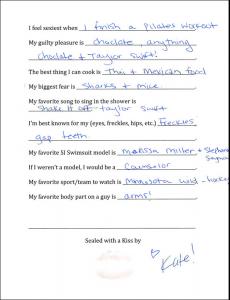 I feel sexiest when I finish a Pilates workout
My guilty pleasure is choclate, anything
choclate + Taylor Swift!
The best thing I can cook is Thai + Mexican food
My biggest fear is Sharks + mice
My favorite song to sing in the shower is
Shake it off - taylor Swift
I'm best known for my (eyes, freckles, hips, etc.) Freckles
gap teeth
My favorite SI Swimsuit model is Marissa Miller + Stephanie
If I weren't a model, I would be a Counselor
My favorite sport/team to watch is Minnesota Wild - hockey
My favorite body part on a guy is arms!
Sealed with a Kiss by
Kate!